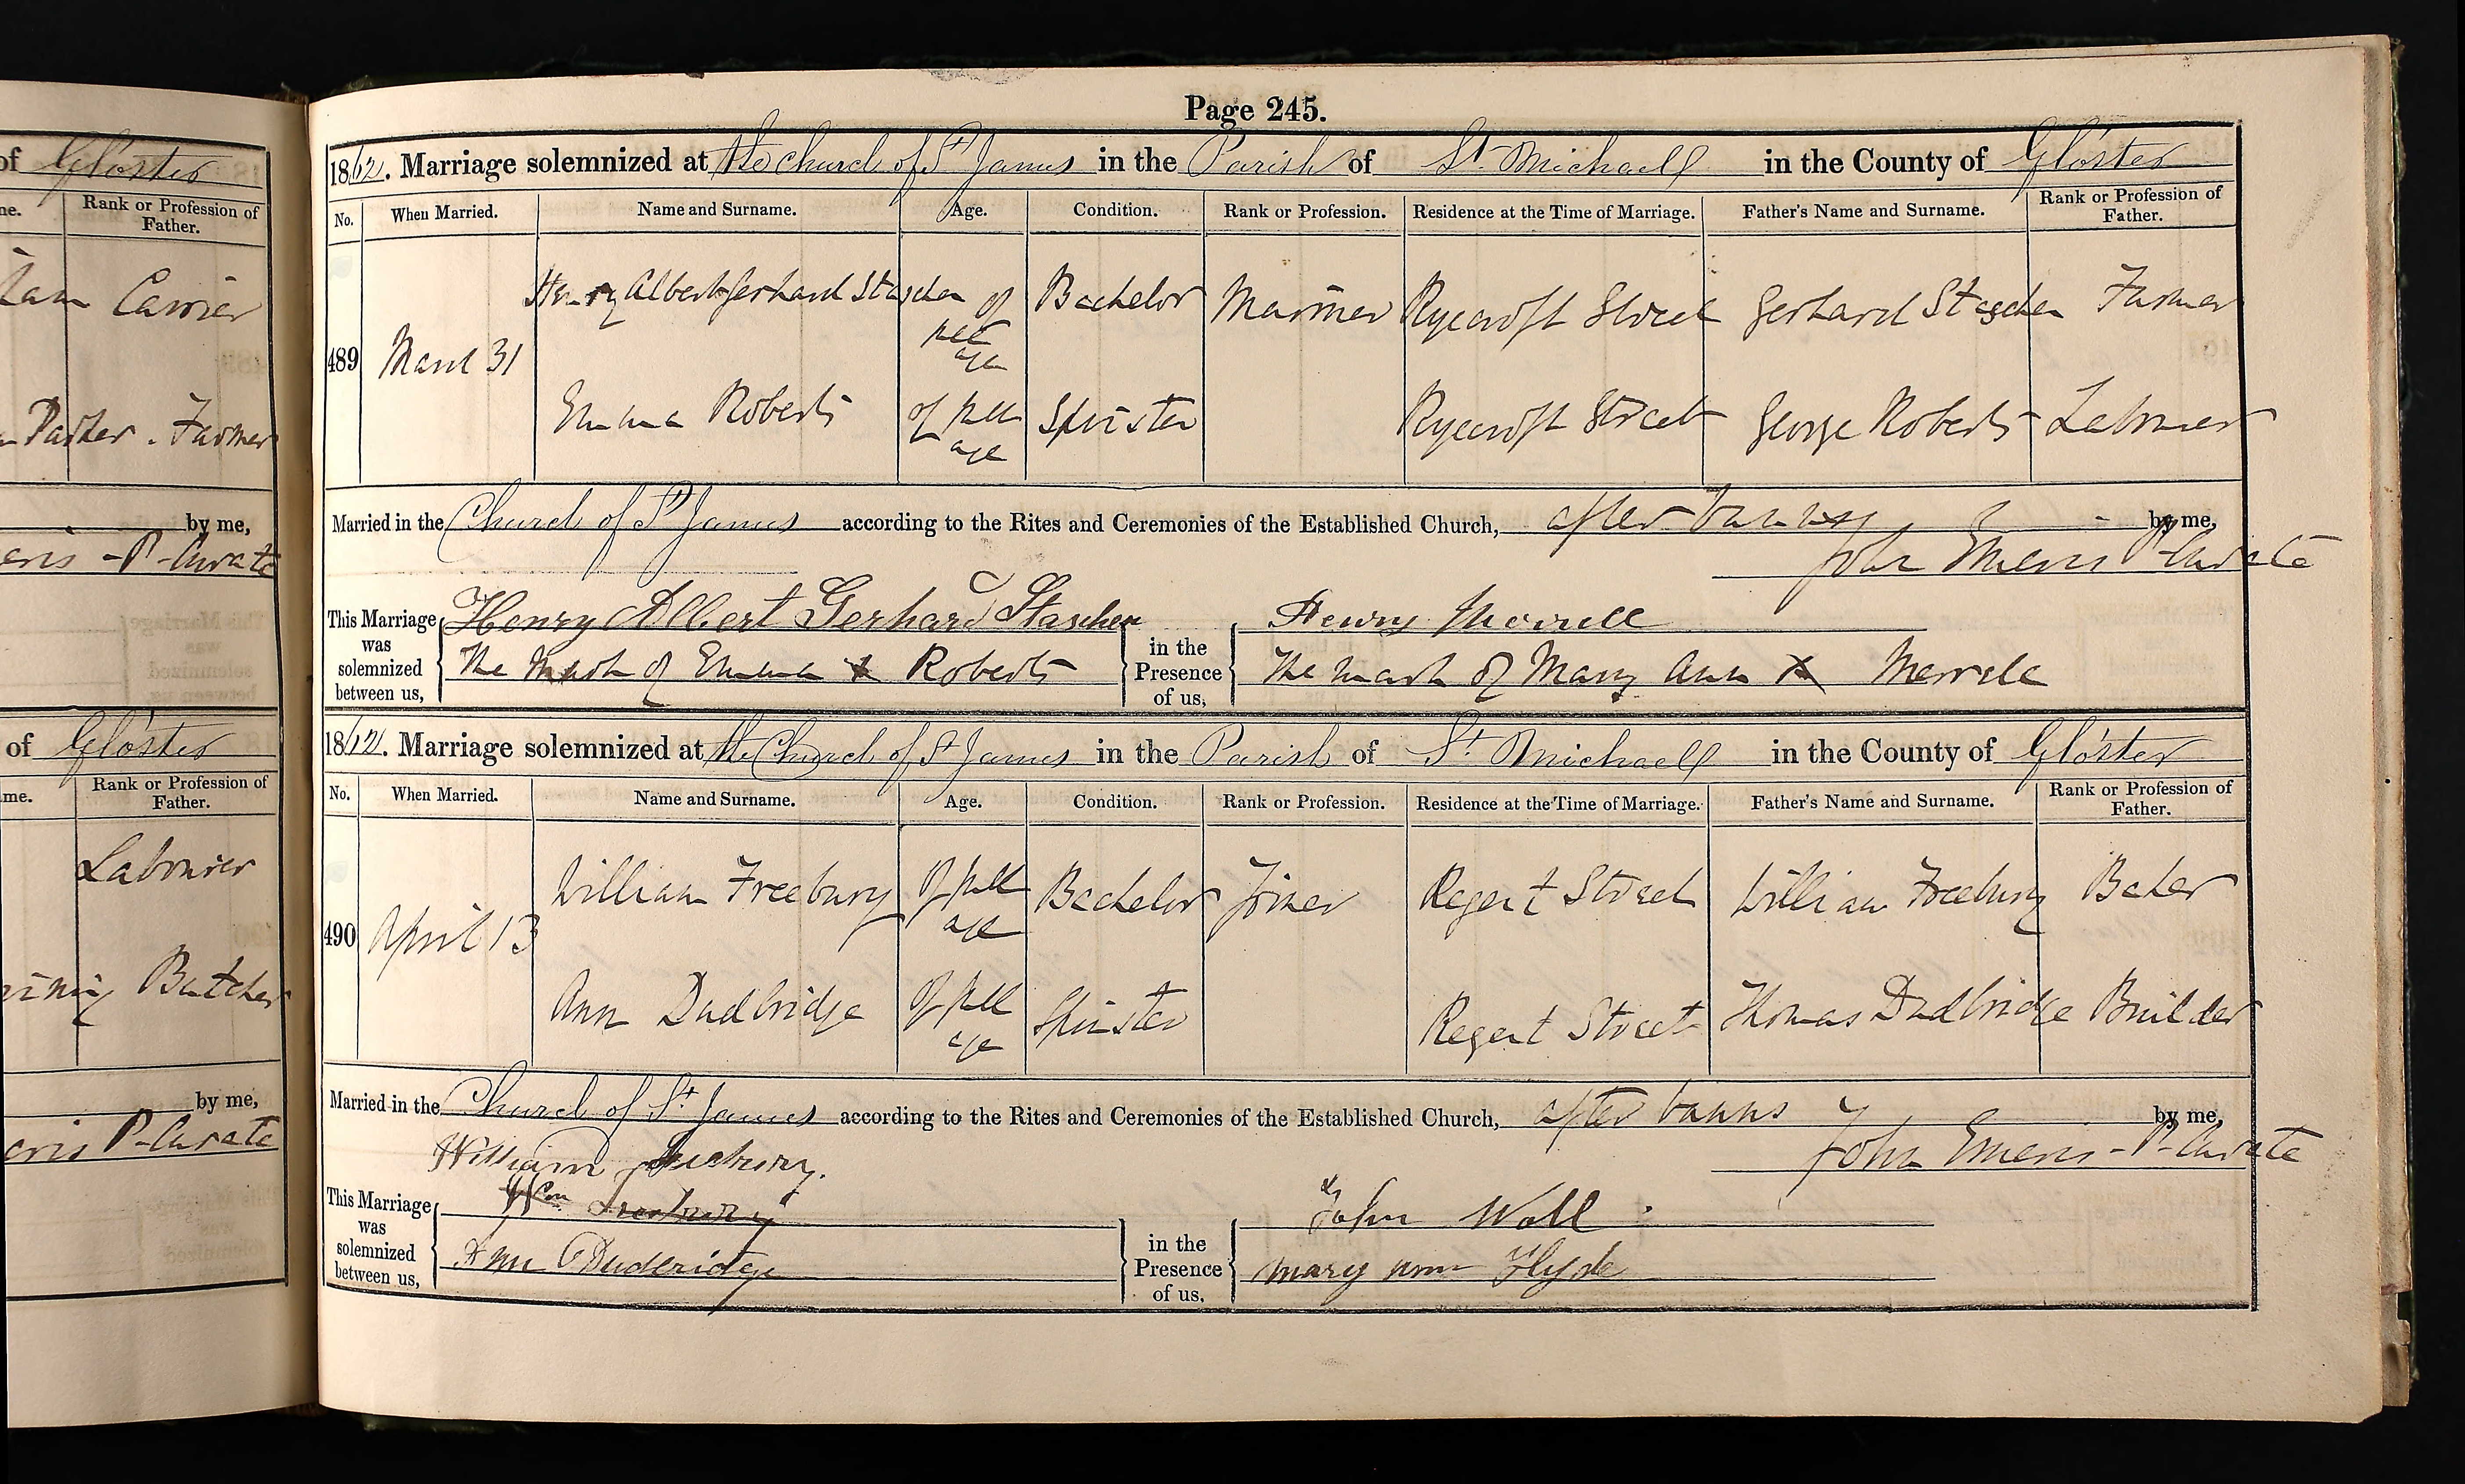 of Gloster
me. Rank or Profession of Father.
Carrier
Parker. Farmer
by me,
eris - P-Curate
of Gloster
me. Rank or Profession of Father.
Labourer
Butcher
by me,
eris P-Curate
Page 245.
1862. Marriage solemnized at the Church of St James in the Parish of St. Michael in the County of Gloster
No. When Married. Name and Surname. Age. Condition. Rank or Profession. Residence at the Time of Marriage. Father's Name and Surname. Rank or Profession of Father.
489 March 31 Henry Albert Gerhard Staschen of full age Bachelor Mariner Ryecroft Street Gerhard Staschen Farmer
Emma Roberts of full age Spinster Ryecroft Street George Roberts Labourer
Married in the Church of St James according to the Rites and Ceremonies of the Established Church, after banns by me,
John Emeris P-Curate
This Marriage was solemnized between us, Henry Albert Gerhard Staschen in the Presence of us, Henry Morrell
The Mark of Emma X Roberts The mark of Mary Ann X Merrele
1862. Marriage solemnized at the Church of St James in the Parish of St. Michael in the County of Gloster
No. When Married. Name and Surname. Age. Condition. Rank or Profession. Residence at the Time of Marriage. Father's Name and Surname. Rank or Profession of Father.
490 April 13 William Freebury Of full age Bachelor Joiner Regent Street William Freebury Baker
Ann Dudbridge Of full age Spinster Regent Street Thomas Dudbridge Builder
Married in the Church of St. James according to the Rites and Ceremonies of the Established Church, after banns by me,
John Emeris - P-Curate
William Freebury.
This Marriage was solemnized between us, Wm Freebury in the Presence of us, John Woll
Ann Duderidge mary ann Hyde